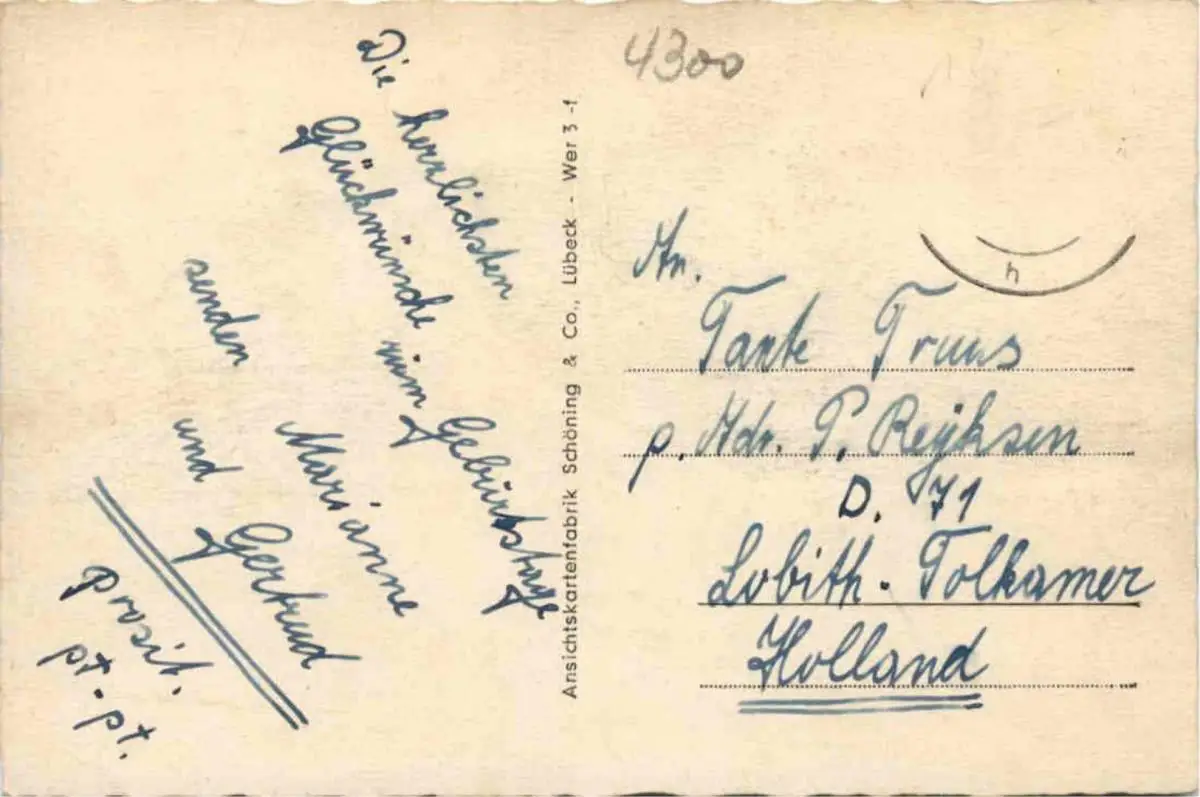 Die herzlichsten
Glückwünsche zum Gebürtstage
senden Marianne
und Gertrud
Prosit.
pt. - pt.
Ansichtskartenfabrik Schöning & Co., Lübeck - Wer 3 -f
4300
h
An.
Tante Truus
p. Adr. P. Reÿksen
D. 71
Lobith. Tolkamer
Holland